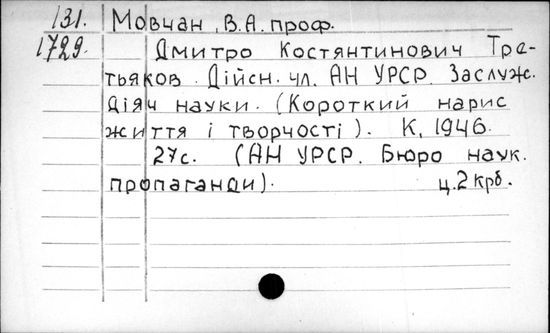 131. Мовчан, В.А. проф.
1729. Дмитро Костянтинович Тре-
тьяков. Дійсн. чл. АН УРСР. Заслуж.
діяч науки. (Короткий нарис
життя і творчості). К, 1946.
27с. (АН УРСР. Бюро наук.
пропаганди). ц. 2 крб.